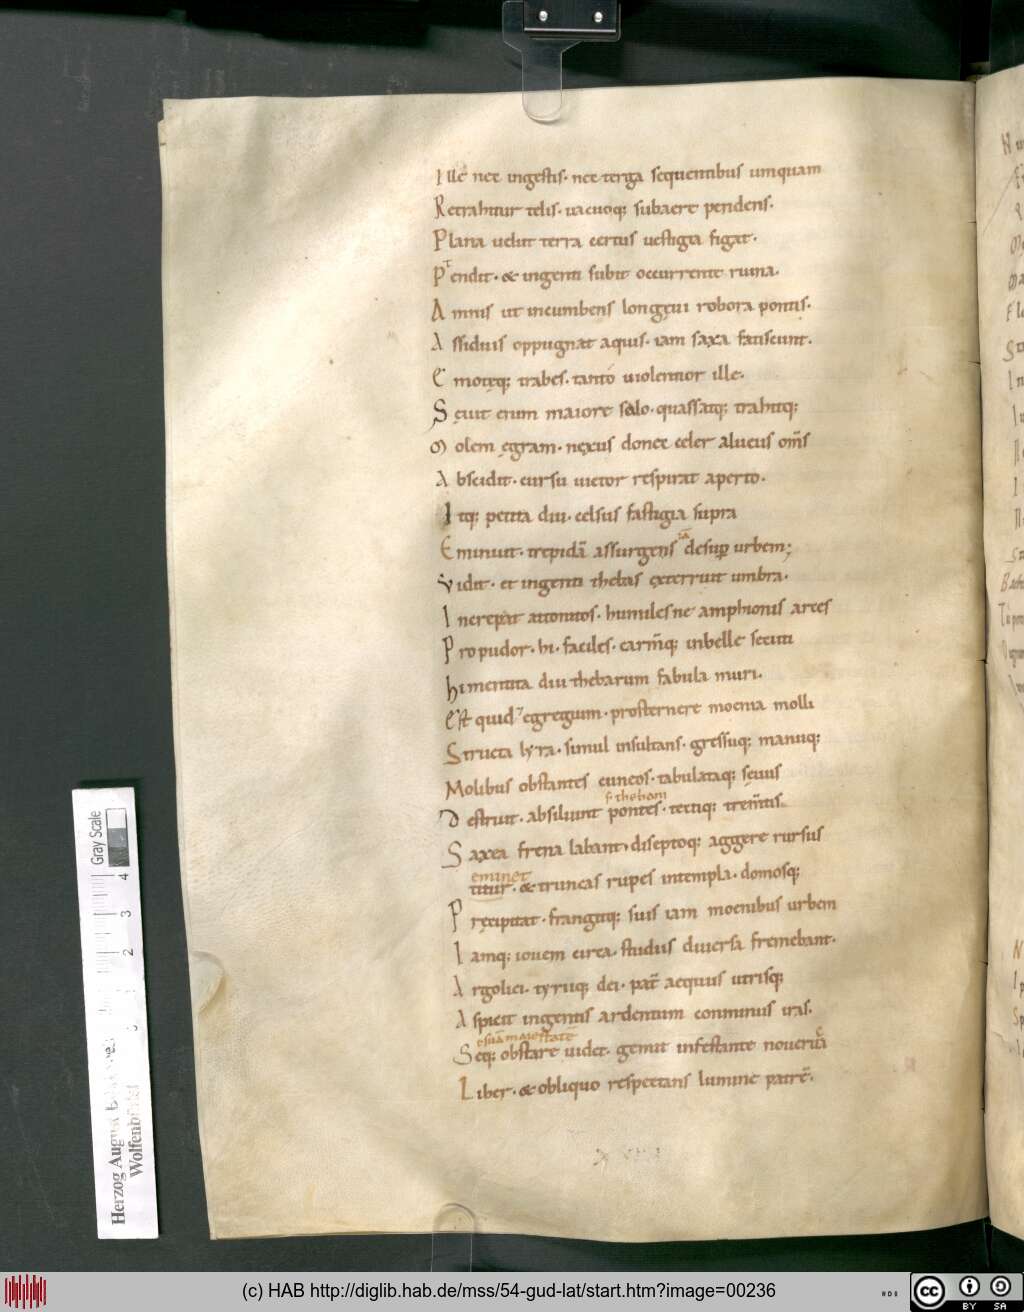 Ille nec ingestis. nec terga sequentibus umquam
Retrahitur telis. uacuoq; subaere pendens.
Plana uelut terra certus uestigia figat.
Ptendit. & ingenti subit occurrente ruina.
Amnis ut incumbens longęui robora pontis.
Assiduis oppugnat aquis. iam saxa fatiscunt.
Emotęq; trabes. tanto uiolentior ille.
Sęuit enim maiore salo. quassatq; trahitq;
Molem ęgram. nexus donec celer alueus om̄s
Abscidit. cursu uictor respirat aperto.
Itq; petita diu. celsus fastigia supra
Eminuit. trepidā assurgens desup urbem;
Vidit. et ingenti thebas exterruit umbra.
Increpat attonitos. humilesne amphionis arces
Pro pudor. hi. faciles. carm̄q; inbelle secuti
hi mentita diu thebarum fabula muri.
Est quid egregium. prosternere moenia molli
Structa lyra. simul insultans. gressuq; manuq;
Molibus obstantes cuneos. tabulataq; sęuus
f thebani
Destruit. absiliunt pontes. tectiq; trem̄tis
Saxea frena labant. diseptoq; aggere rursus
eminet
utitur. & truncas rupes intempla. domosq;
Pręcipitat. frangitq; suis iam moenibus urbem
Iamq; iouem circa. studiis diuersa fremebant.
Argolici. tyriiq; dei. pat̄ aequus utrisq;
Aspicit ingentis ardentum comminus iras.
esuā maiestatē
Seq; obstare uidet. gemit infestante nouerca
Liber. & obliquo respectans lumine patrē.
Herzog August Bibliothek
Wolfenbüttel
Gray Scale
2 3 4
(c) HAB http://diglib.hab.de/mss/54-gud-lat/start.htm?image=00236
cc BY SA